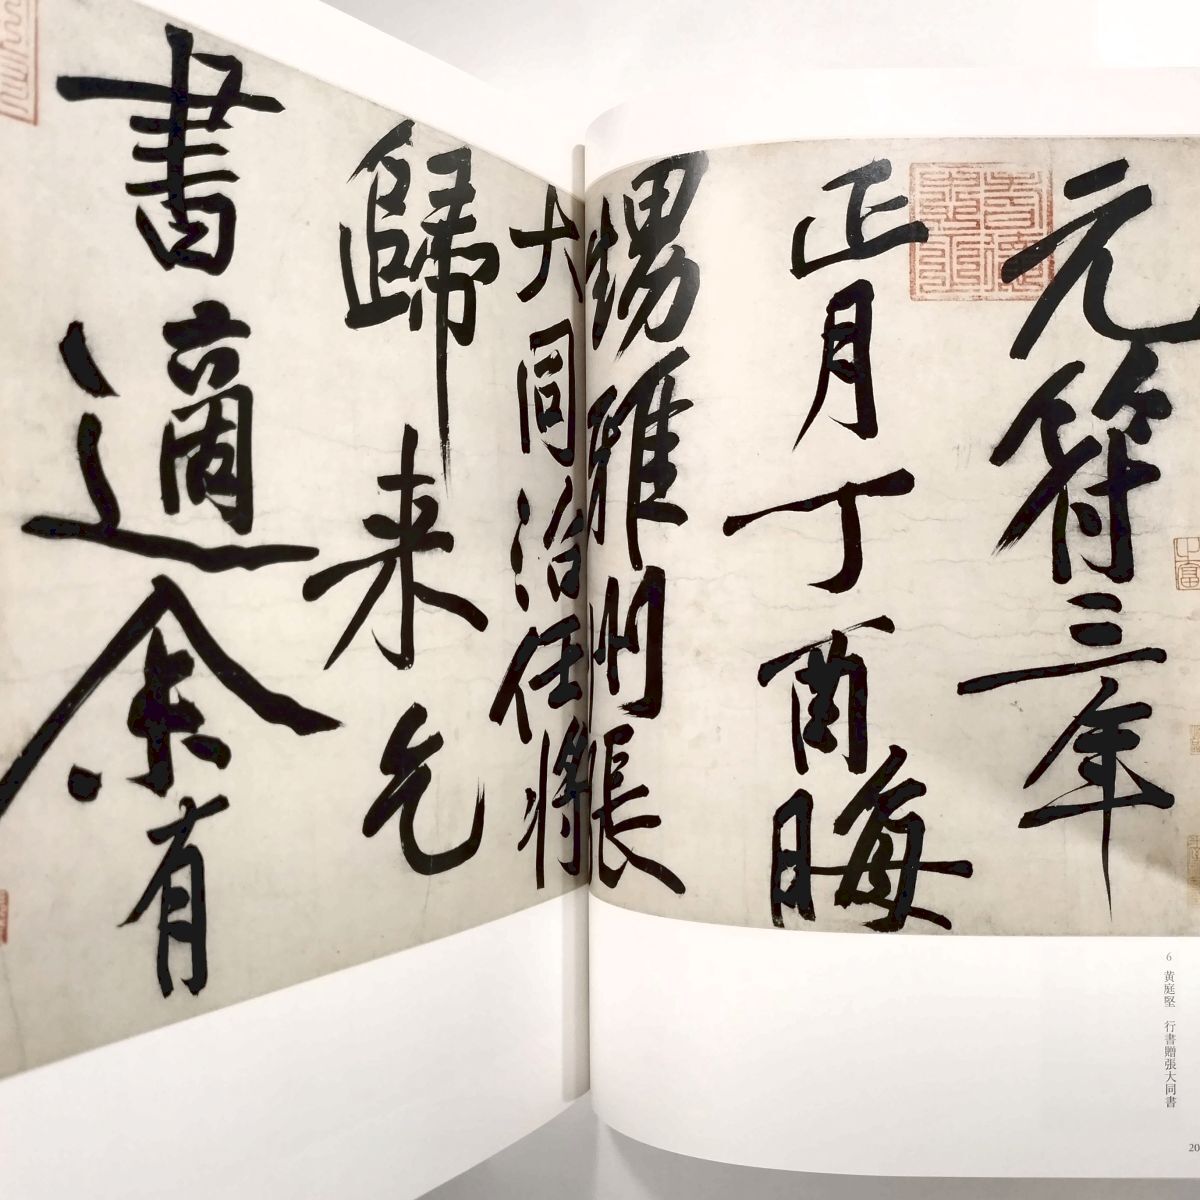 元符三年
正月丁酉晦
甥雅州張
大同治任將
歸来乞
書適余有
6 黄庭堅 行書贈張大同書
20